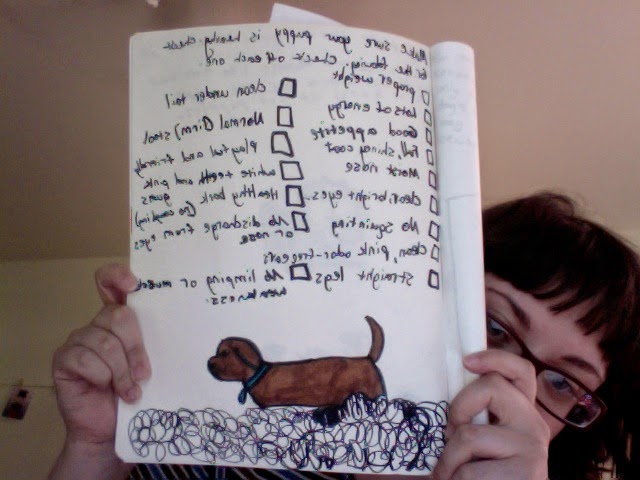 Make sure your puppy is healthy. check
for the following. Check off each one.
proper weight
Lots of energy
Good appetite
full, shiny coat
Moist nose
clear, bright eyes.
No squinting
clean, pink, odor-free ears
straight legs
clean under tail
Normal (firm) stool
Playful and friendly
white teeth and pink
gums
Healthy bark
(no coughing)
No discharge from eyes
or nose
No limping or muscle
weakness.